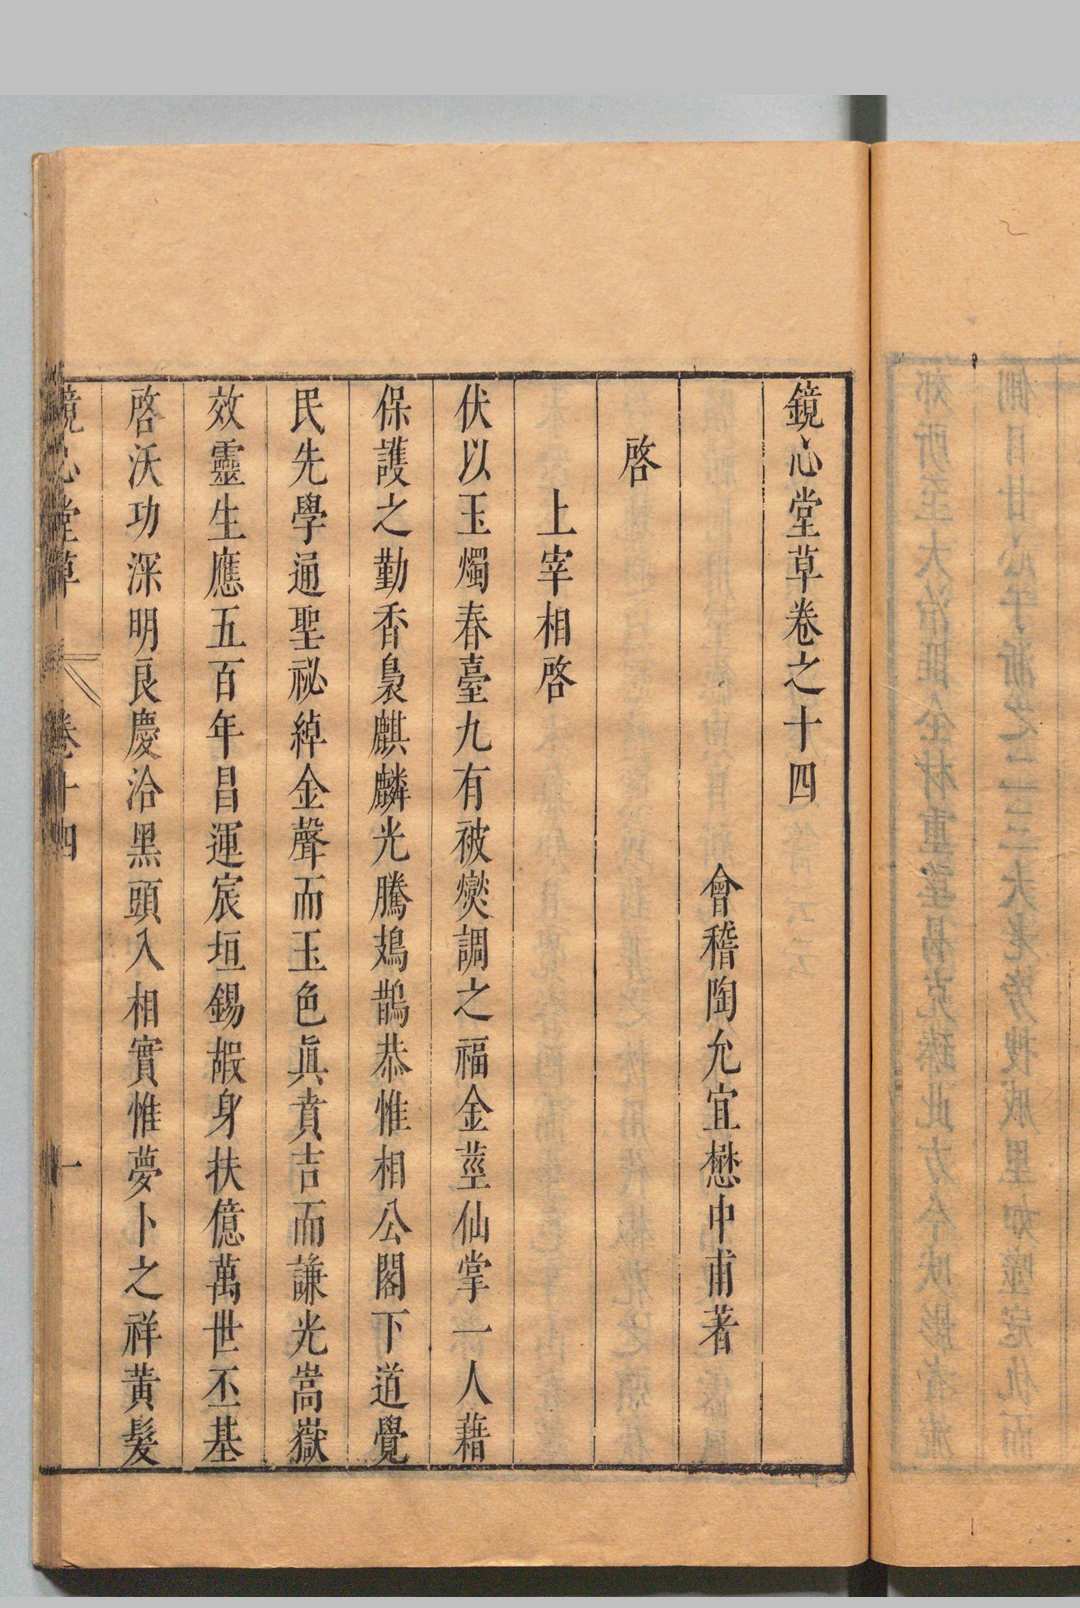 鏡心堂草卷之十四
會稽陶允宜懋中甫著
啓
上宰相啓
伏以玉燭春臺九有被爕調之福金莖仙掌一人藉
保護之勤香裊麒麟光騰鳷鵲恭惟相公閣下道覺
民先學通聖祕綽金聲而玉色眞賁吉而謙光嵩嶽
效靈生應五百年昌運宸垣錫嘏身扶億萬世丕基
啓沃功深明良慶洽黑頭入相實惟夢卜之祥黃髮
鏡心堂草 卷十四 一